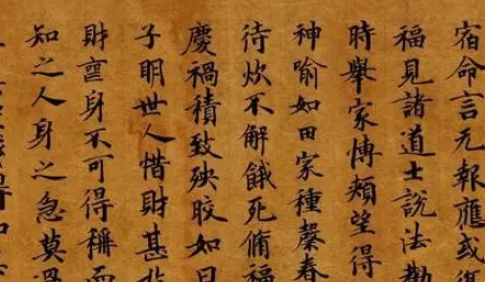 宿命言无報應或復
福見諸道士說法勸
時舉家愽頰望得
神喻如田家種罄舂
待炊不解餓死脩福
慶禍積致殃皎如日
子明世人惜財甚
財亶身不可得稱而
知之人身之急莫過